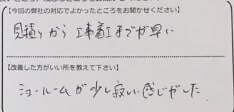 【今回の弊社の対応でよかったところをお聞かせください】
見積りから工事着工までが早い
【改善した方がいい所を教えて下さい】
ショールームが少し寂い感じがした。